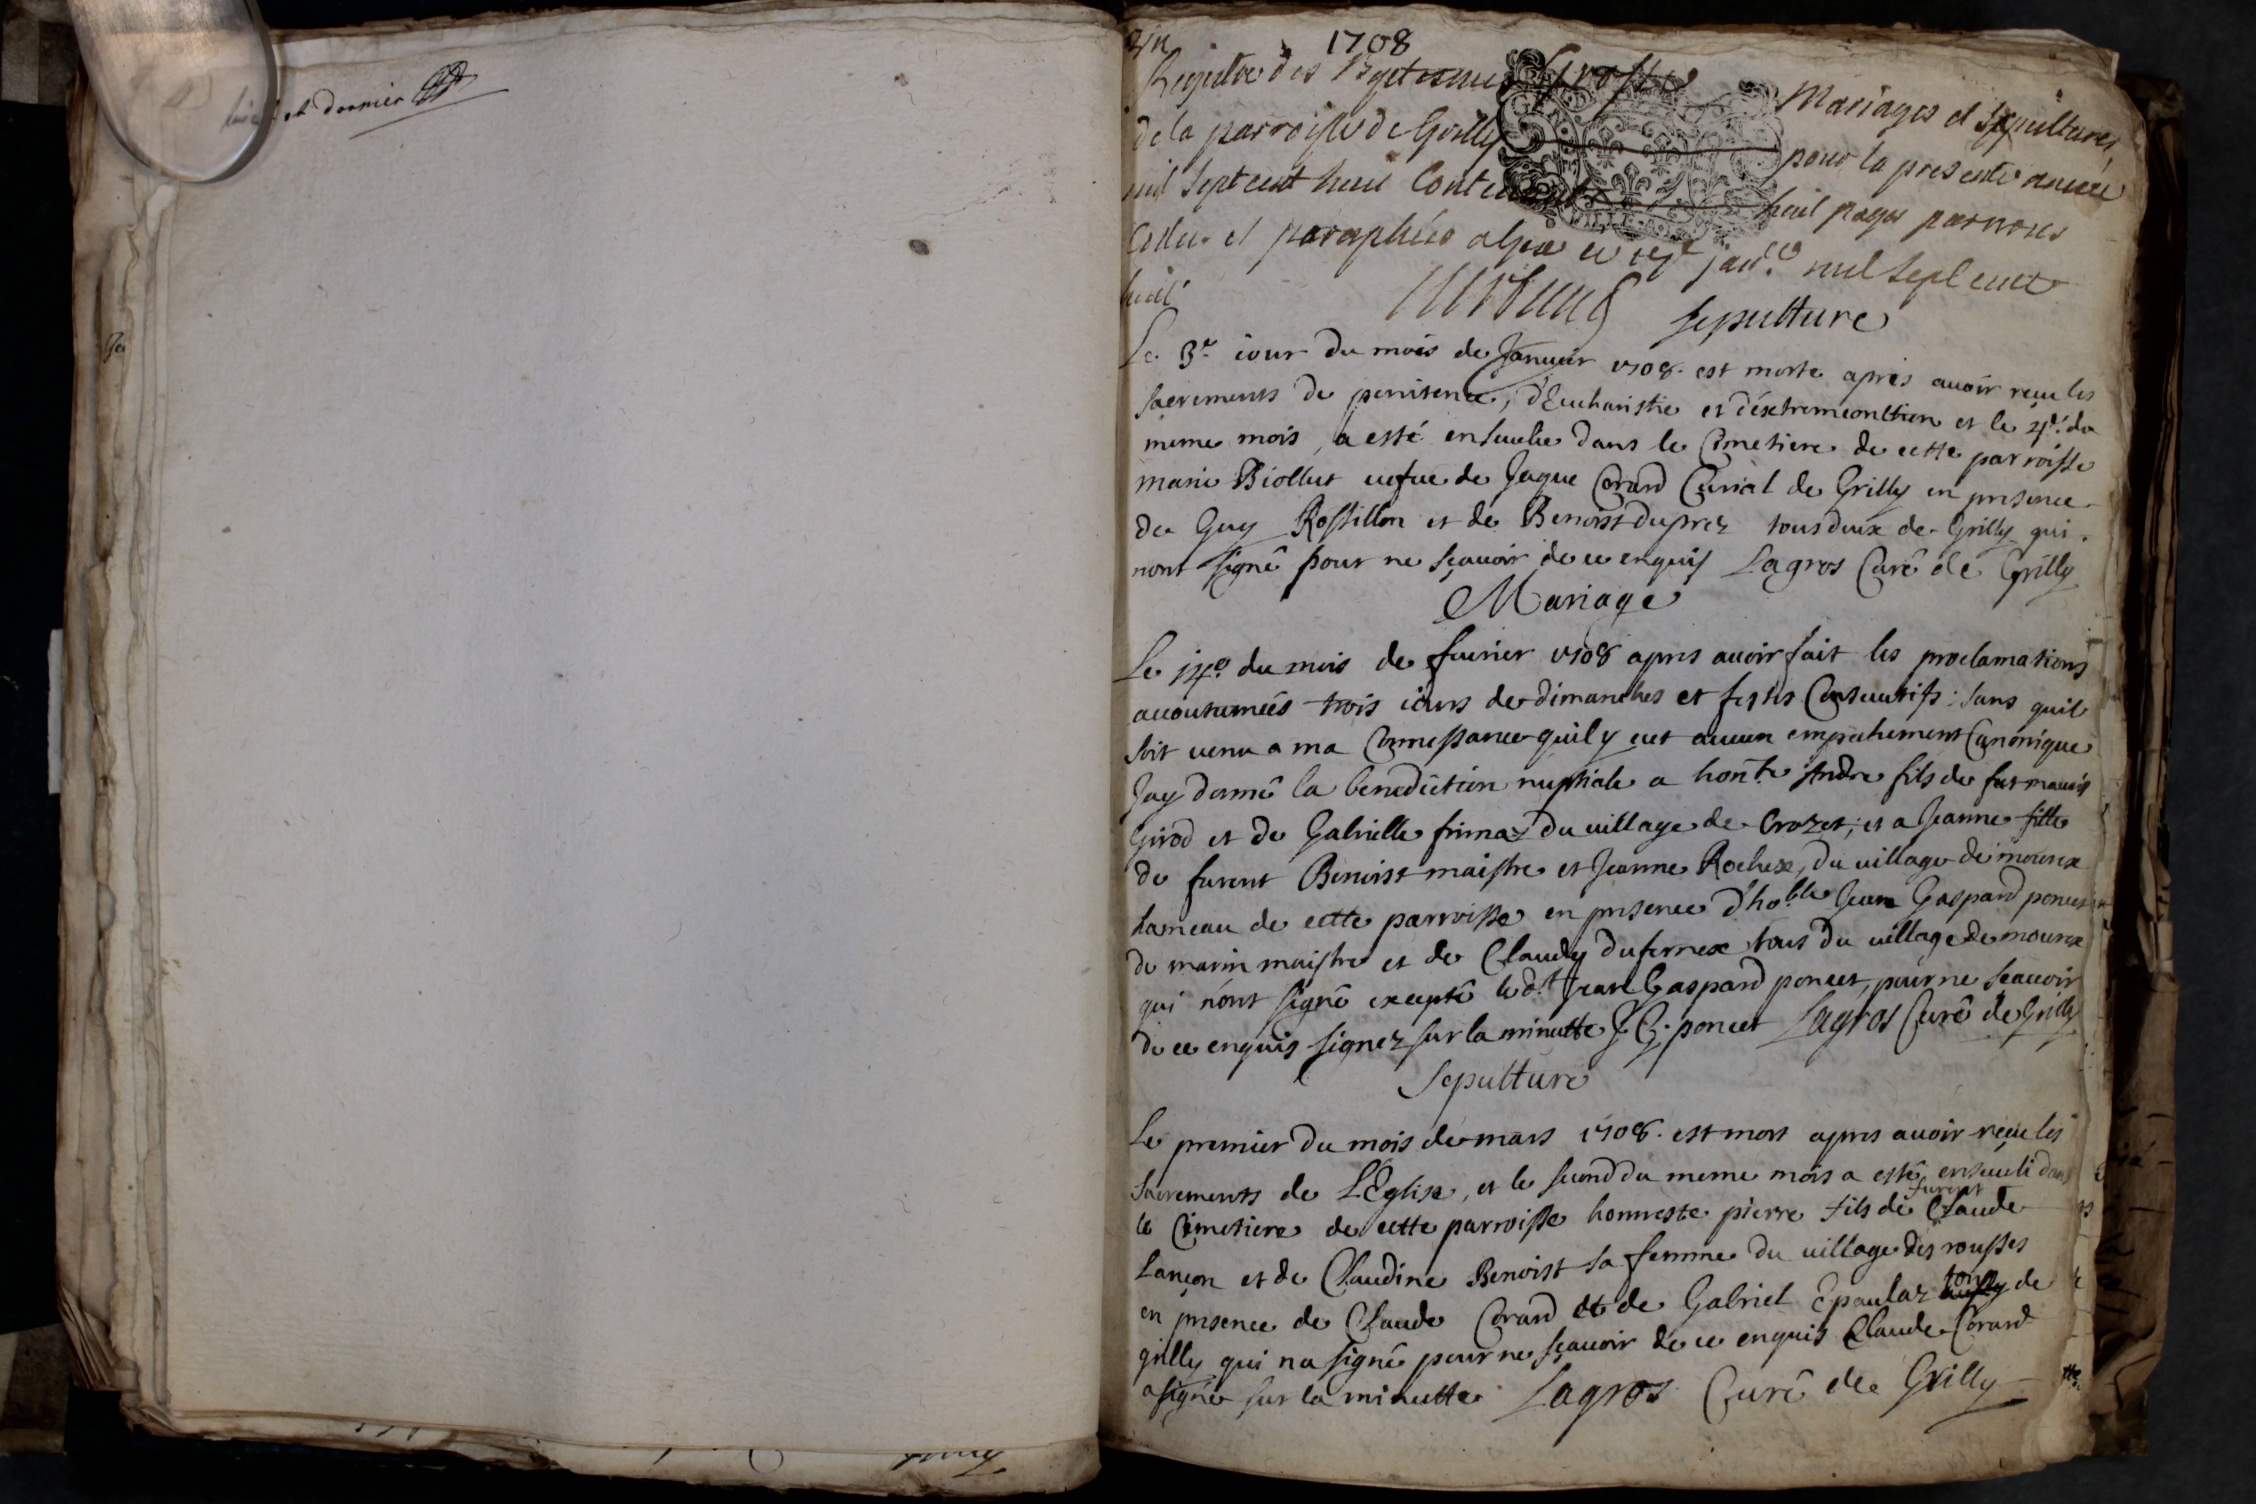 et dernier
1708
Registre des Baptesmes Mariages et Sepultures
de la parroisse de Grilly pour la presente année
mil sept cent huit Contenant huit pages par nous
Cottée et paraphées a Gex ce janer mil sept cent
huit
Sepulture
Le 3e iour du mois de Januier 1708. est morte apres auoir receu les
sacrements de penitence, d'Eucharistie et d'éxtremeonction et le 4e. du
meme mois, a esté enseuelie dans le Cimetiere de cette parroisse
marie Biollut uefue de Jaque Corard Curial de Grilly en presence
de Guy Rossillon et de Benoist Duprez tous deux de Grilly qui
nont signé pour ne sçauoir de ce enquis Lagros Curé de Grilly
Mariage
Le 14e. du mois de feurier 1708 apres auoir fait les proclamations
accoutumées trois iours de dimanches et festes Consecutifs: sans quil
soit uenu a ma Connessance quil y eut aucun empechement Canonique
Jay donné la benediction nuptiale a hon.te Andre fils de fut mauris
Girod et de Gabrielle frimaz du uillage de Crozet; et a Jeanne fille
de furent Benoist maistre et Jeanne Rochex, du uillage de mourex
hameau de cette parroisse en presence d'ho.ble Jean Gaspard poncet
de marin maistre et de Claudy dufernex tous du uillage de mourex
qui n'ont signé excepté led.t Jean Gaspard poncet, pour ne sçauoir
de ce enquis signez sur la minutte J. G. poncet Lagros Curé de Grilly
Sepulture
Le premier du mois de mars 1708. est mort apres auoir reçeu les
sacrements de L'Eglise, et le second du meme mois a esté enseueli dans
le Cimetiere de cette parroisse honneste pierre fils de furent Claude
Lançon et de Claudine Benoist sa femme du uillage des rousses
en presence de Claude Corard et de Gabriel Epaulaz tous de
grilly qui na signé pour ne sçauoir de ce enquis Claude Corard
a signé sur la minutte Lagros Curé de Grilly